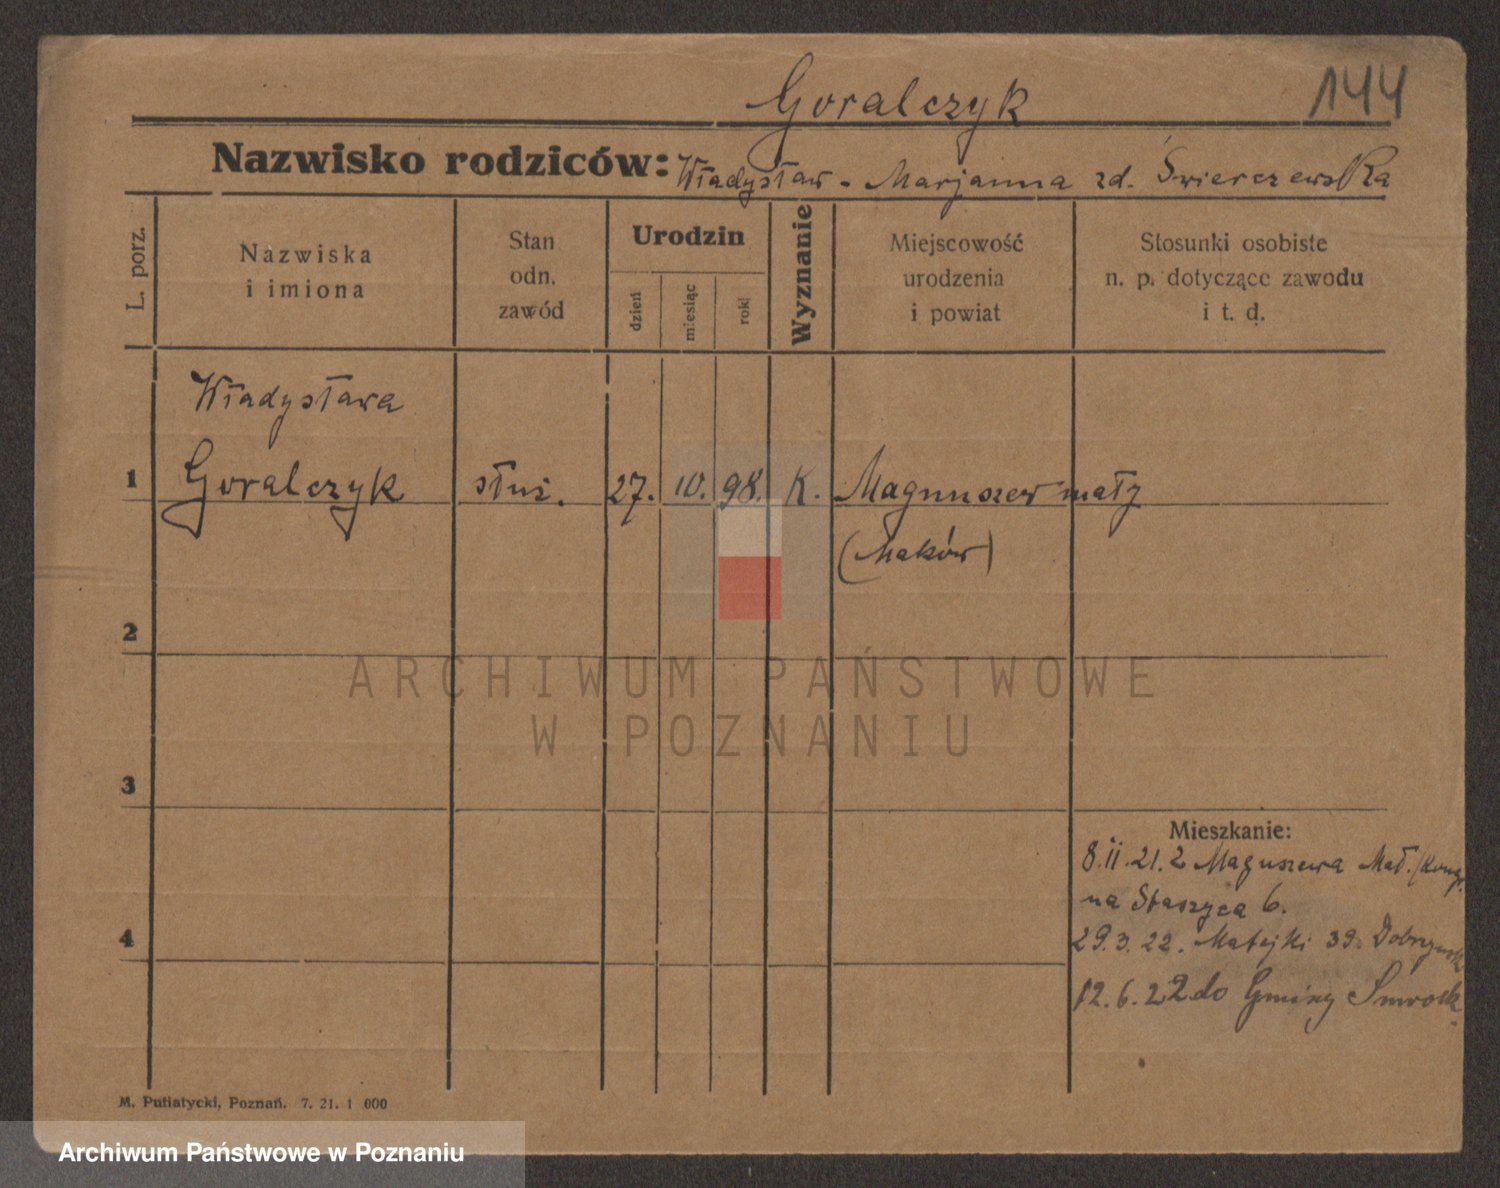 Goralczyk
144
Nazwisko rodziców: Władysław - Marjanna zd. Świerczewska
L. porz.
Nazwiska
i imiona
Stan
odn.
zawód
Urodzin
dzień
miesiąc
rok
Wyznanie
Miejscowość
urodzenia
i powiat
Stosunki osobiste
n. p. dotyczące zawodu
i t. d.
Władysława
1 Goralczyk służ. 27. 10. 98. K. Magnuszew mały
(Maków)
2
ARCHIWUM PAŃSTWOWE
W POZNANIU
3
Mieszkanie:
8.II.21. z Maguszewa Mał. (Kong.
na Staszyca 6.
4
29.3.22. Matejki 39.
12.6.22 do Gminy Smrock
M. Putiatycki, Poznań. 7. 21. 1 000
Archiwum Państwowe w Poznaniu